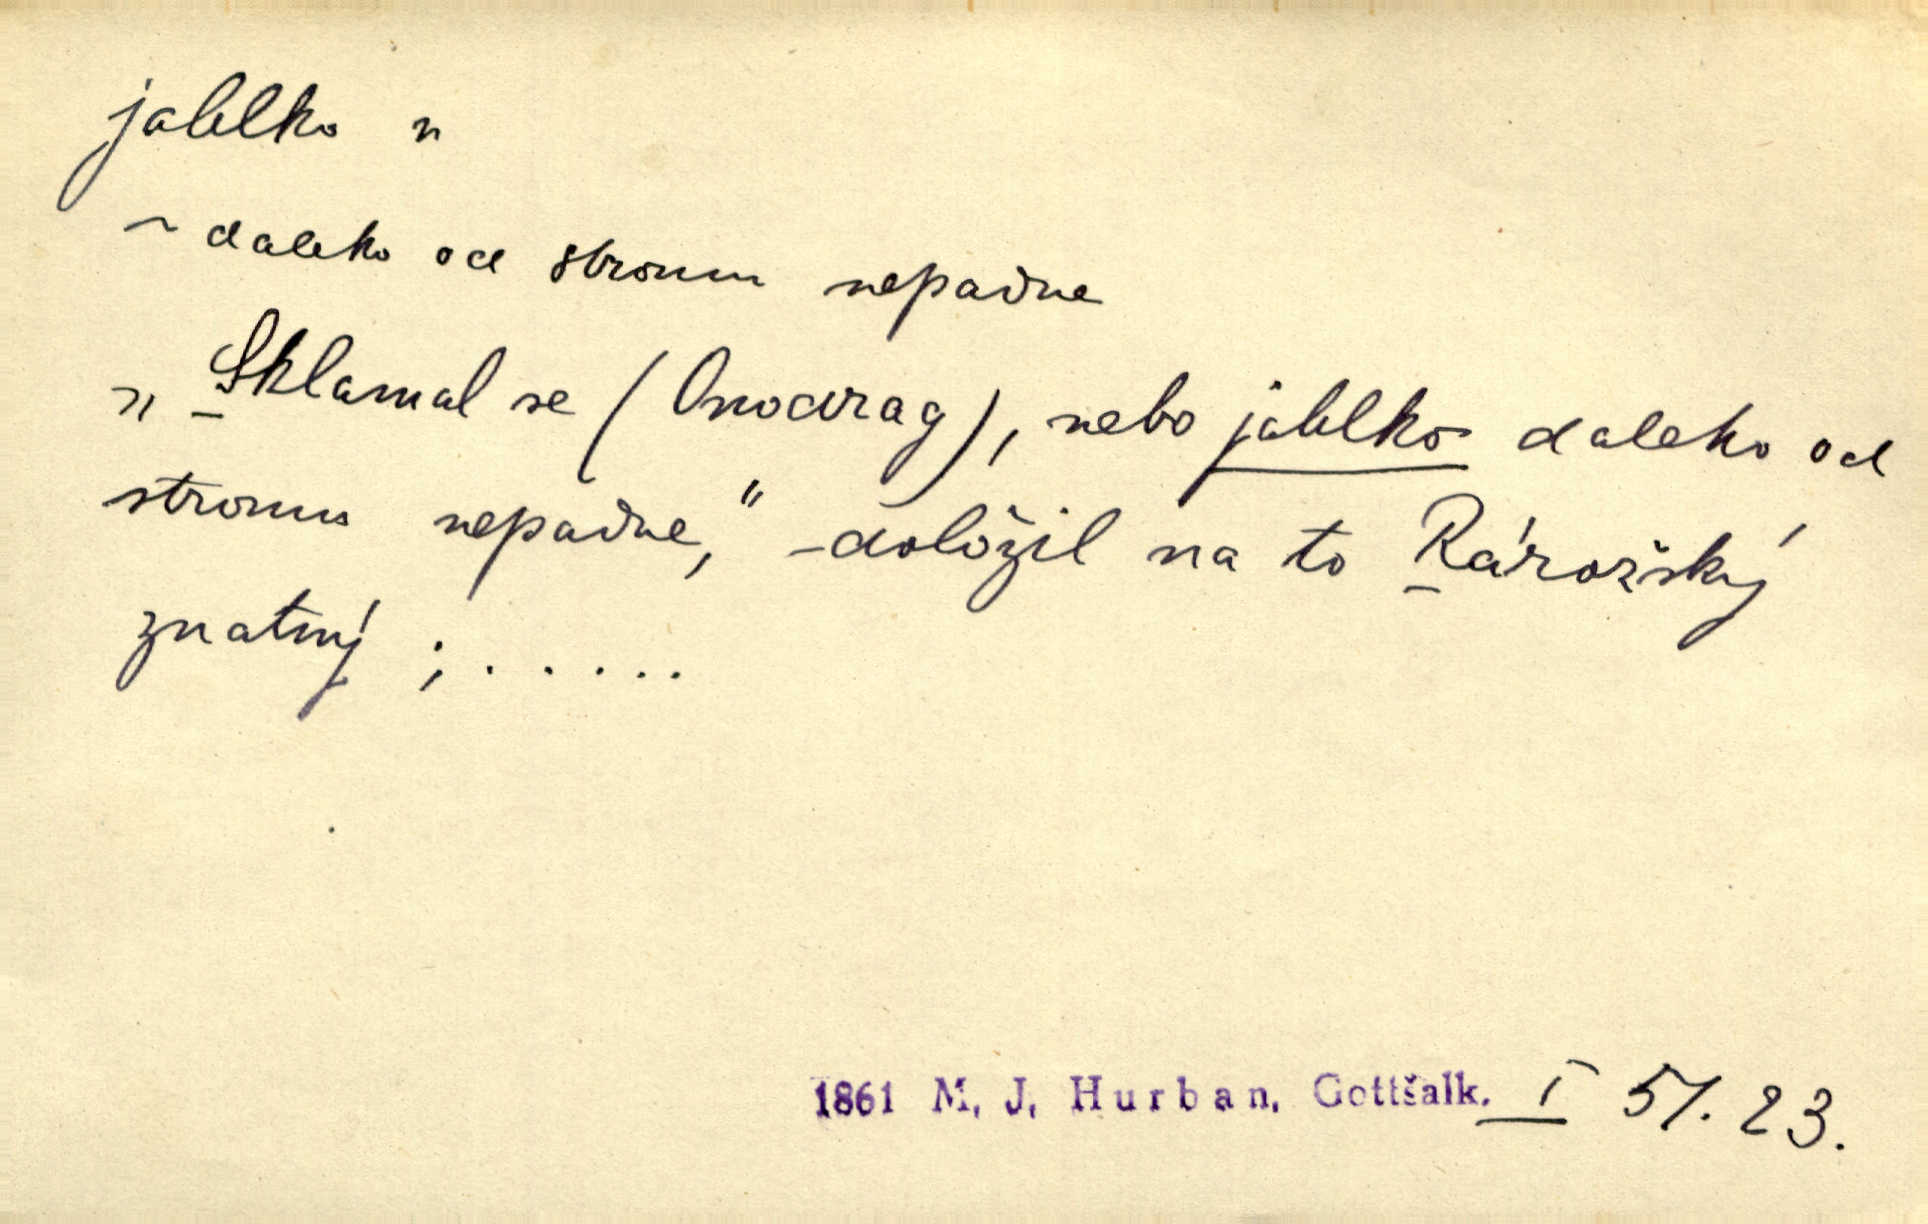 jablko n
~ daleko od stromu nepadne
„Sklamal se (Onodrag), nebo jablko daleko od
stromu nepadne,“ – doložil na to Rárožský
znatný ; . . . . .
1861 M. J. Hurban, Gottšalk. I 51. 23.